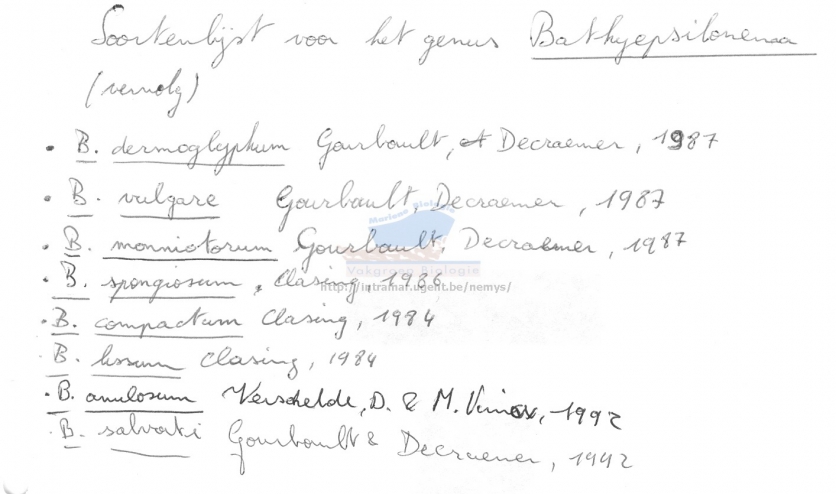 Soortenlijst voor het genus Bathyepsilonema
(vervolg)
• B. dermoglyphum Gourbault, et Decraemer, 1987
• B. vulgare Gourbault, Decraemer, 1987
• B. monniotorum Gourbault, Decraemer, 1987
• B. spongiosum, Clasing, 1986
• B. compactum Clasing, 1984
• B. lissum Clasing, 1984
• B. anulosum Verschelde, D. & M. Vincx, 1992
• B. salvati Gourbault & Decraemer, 1992
Mariene Biologie
Vakgroep Biologie
http://intramar.ugent.be/nemys/